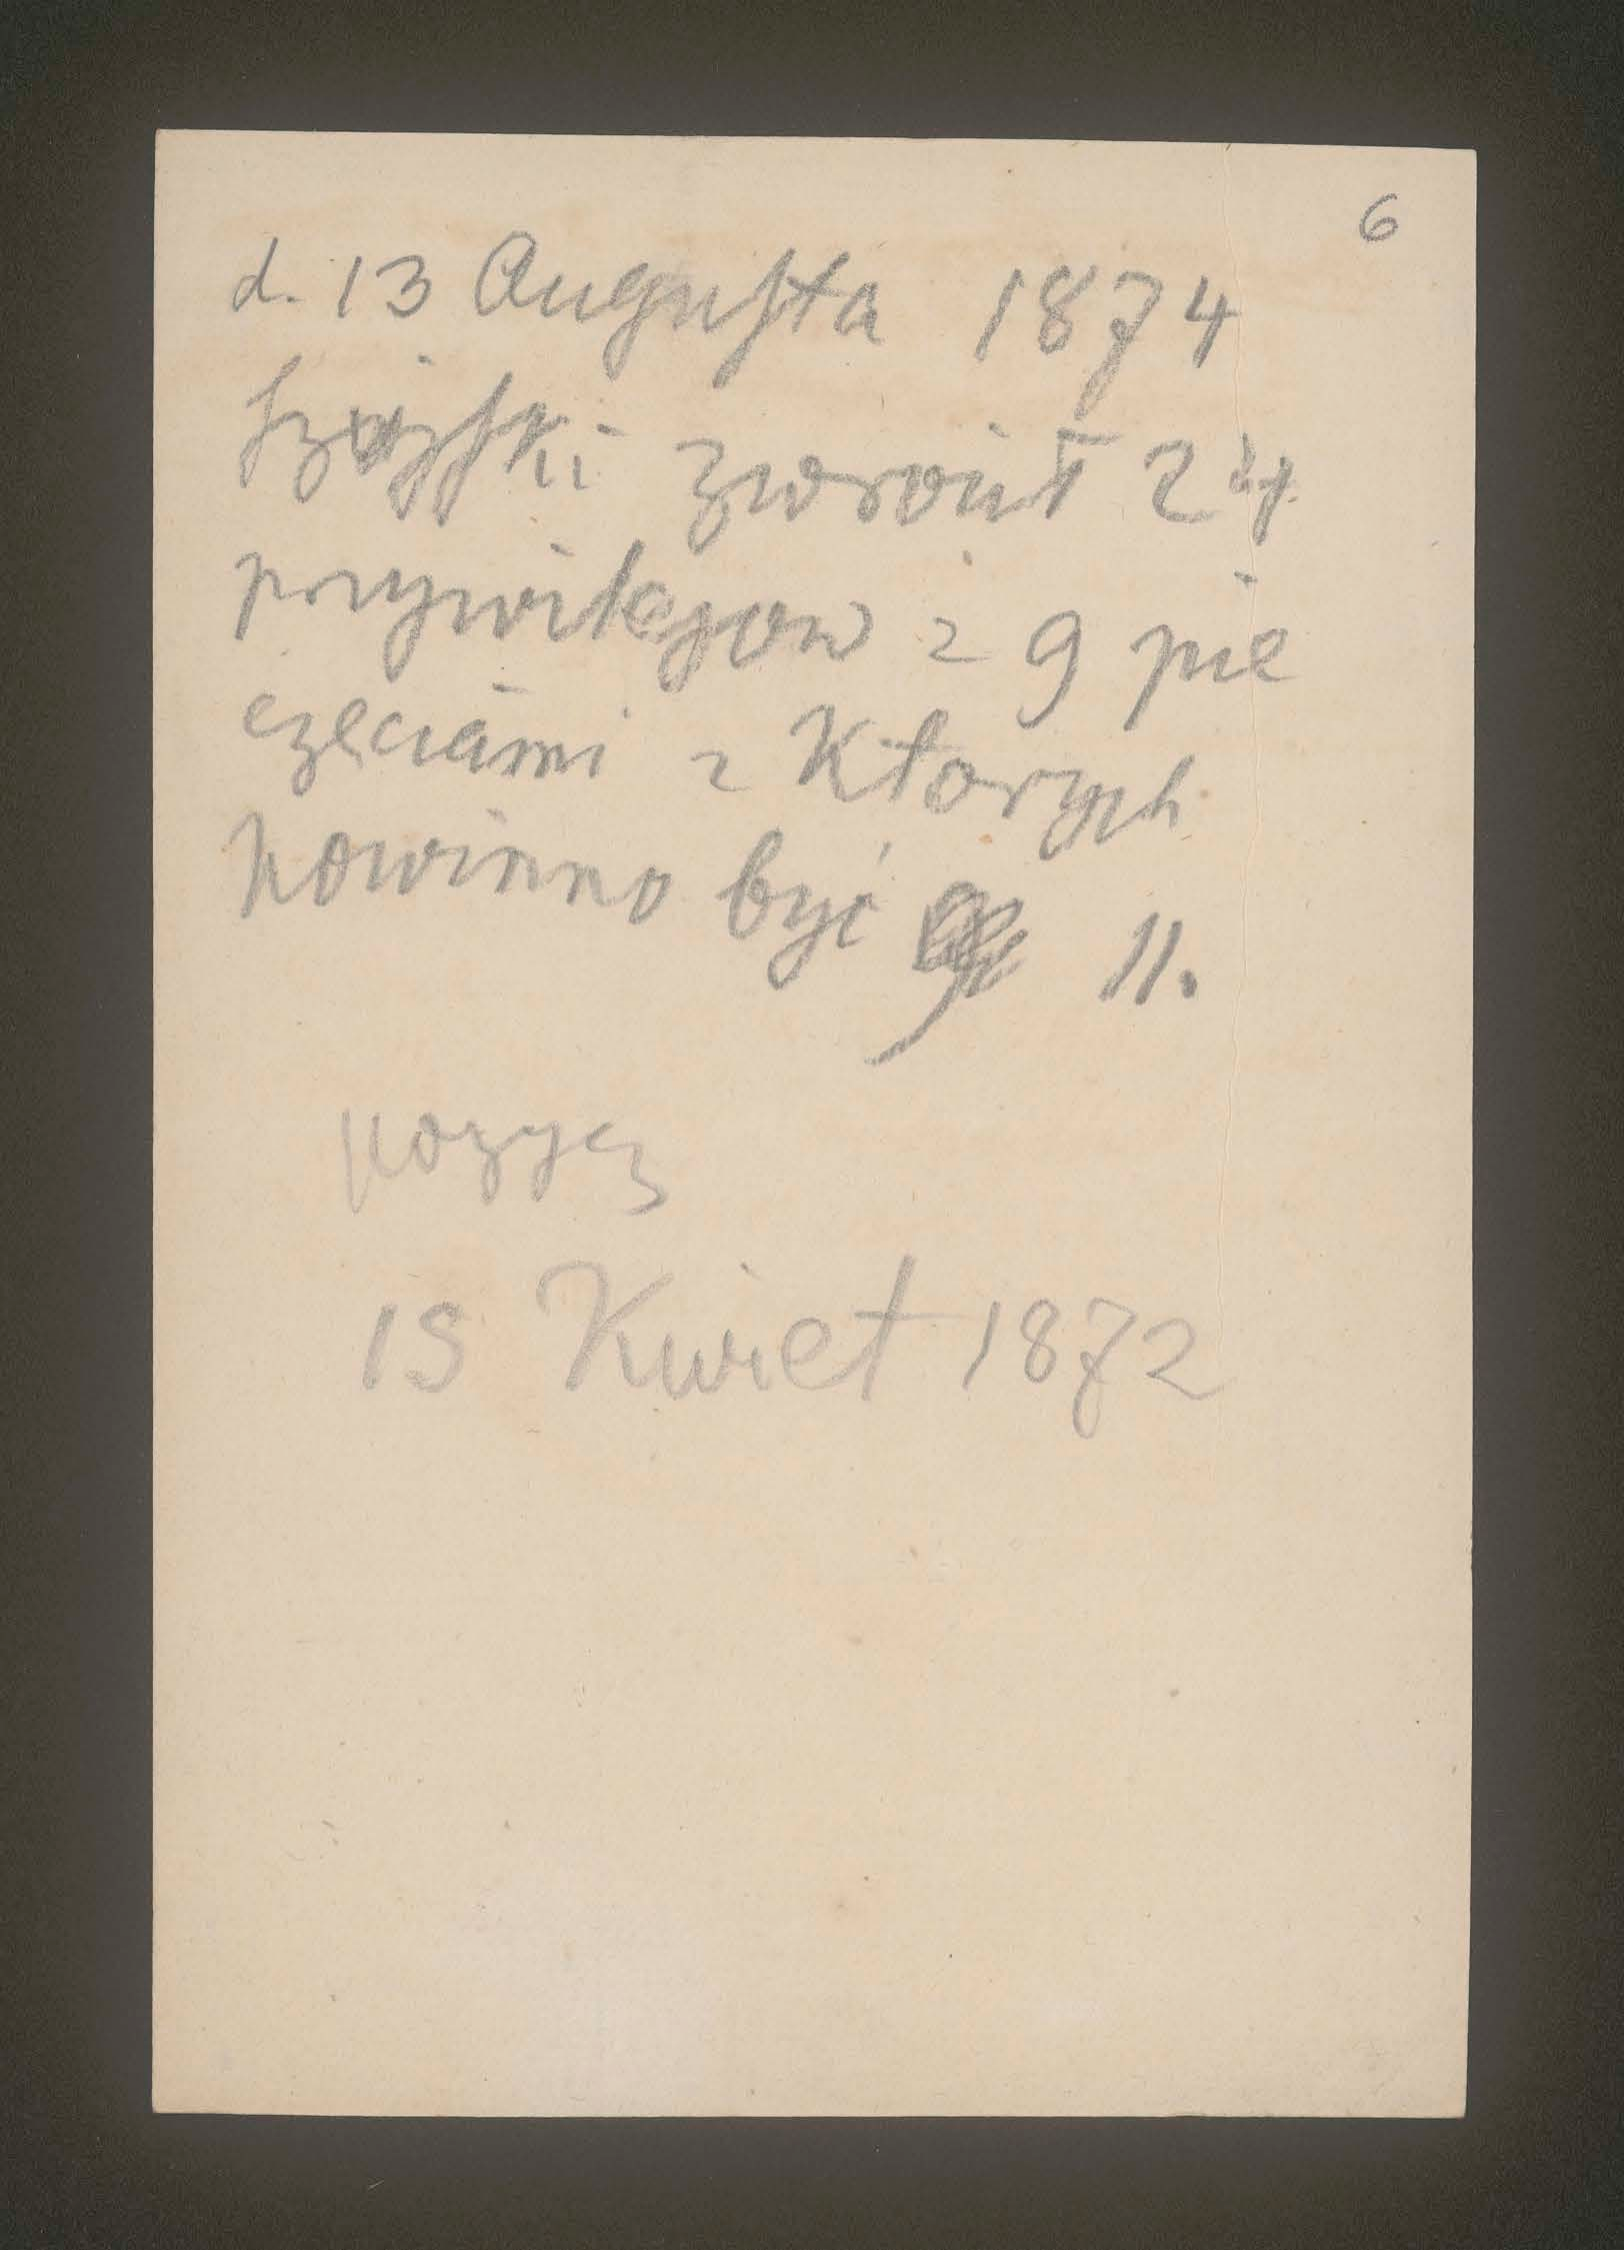 6
d. 13 Augusta 1874
Szujski zwrócił 24
przywilejow z 9 pie
częciami z ktorych
powinno być 11.
pozycz
15 Kwiet 1872